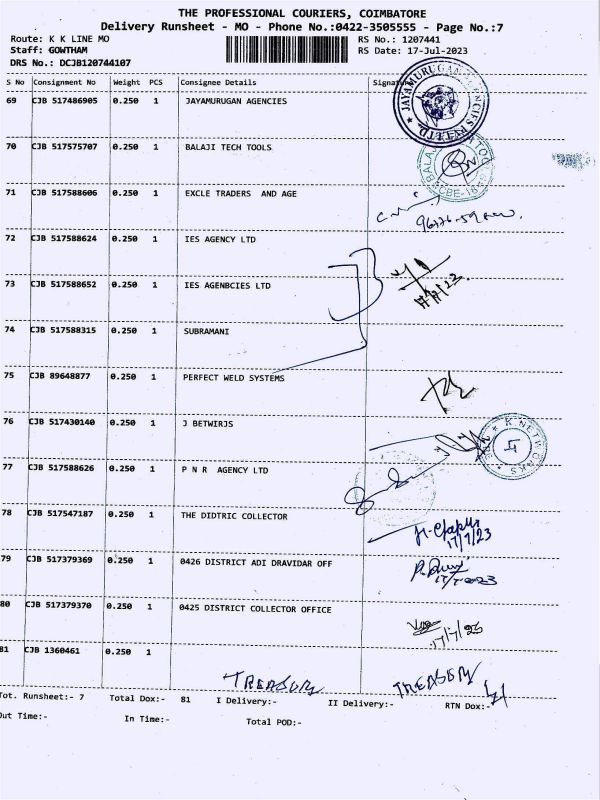 THE PROFESSIONAL COURIERS, COIMBATORE
Delivery Runsheet - MO - Phone No.:0422-3505555 - Page No.:7
Route: K K LINE MO
RS No.: 1207441
Staff: GOWTHAM
RS Date: 17-Jul-2023
DRS No.: DCJB120744107
S No Consignment No Weight PCS Consignee Details Signat
69 CJB 517486905 0.250 1 JAYAMURUGAN AGENCIES
JAYAMURUGAN AGENCIES PVT LTD.
70 CJB 517575707 0.250 1 BALAJI TECH TOOLS
CBE-18
71 CJB 517588606 0.250 1 EXCLE TRADERS AND AGE
72 CJB 517588624 0.250 1 IES AGENCY LTD
73 CJB 517588652 0.250 1 IES AGENBCIES LTD
74 CJB 517588315 0.250 1 SUBRAMANI
75 CJB 89648877 0.250 1 PERFECT WELD SYSTEMS
76 CJB 517430140 0.250 1 J BETWIRJS
K NETWORKS
77 CJB 517588626 0.250 1 P N R AGENCY LTD
78 CJB 517547187 0.250 1 THE DIDTRIC COLLECTOR
17/7/23
79 CJB 517379369 0.250 1 0426 DISTRICT ADI DRAVIDAR OFF
17/7/2023
80 CJB 517379370 0.250 1 0425 DISTRICT COLLECTOR OFFICE
17/7/23
81 CJB 1360461 0.250 1
TREASURY TREASURY
Tot. Runsheet:- 7 Total Dox:- 81 I Delivery:- II Delivery:- RTN Dox:-
Out Time:- In Time:- Total POD:-